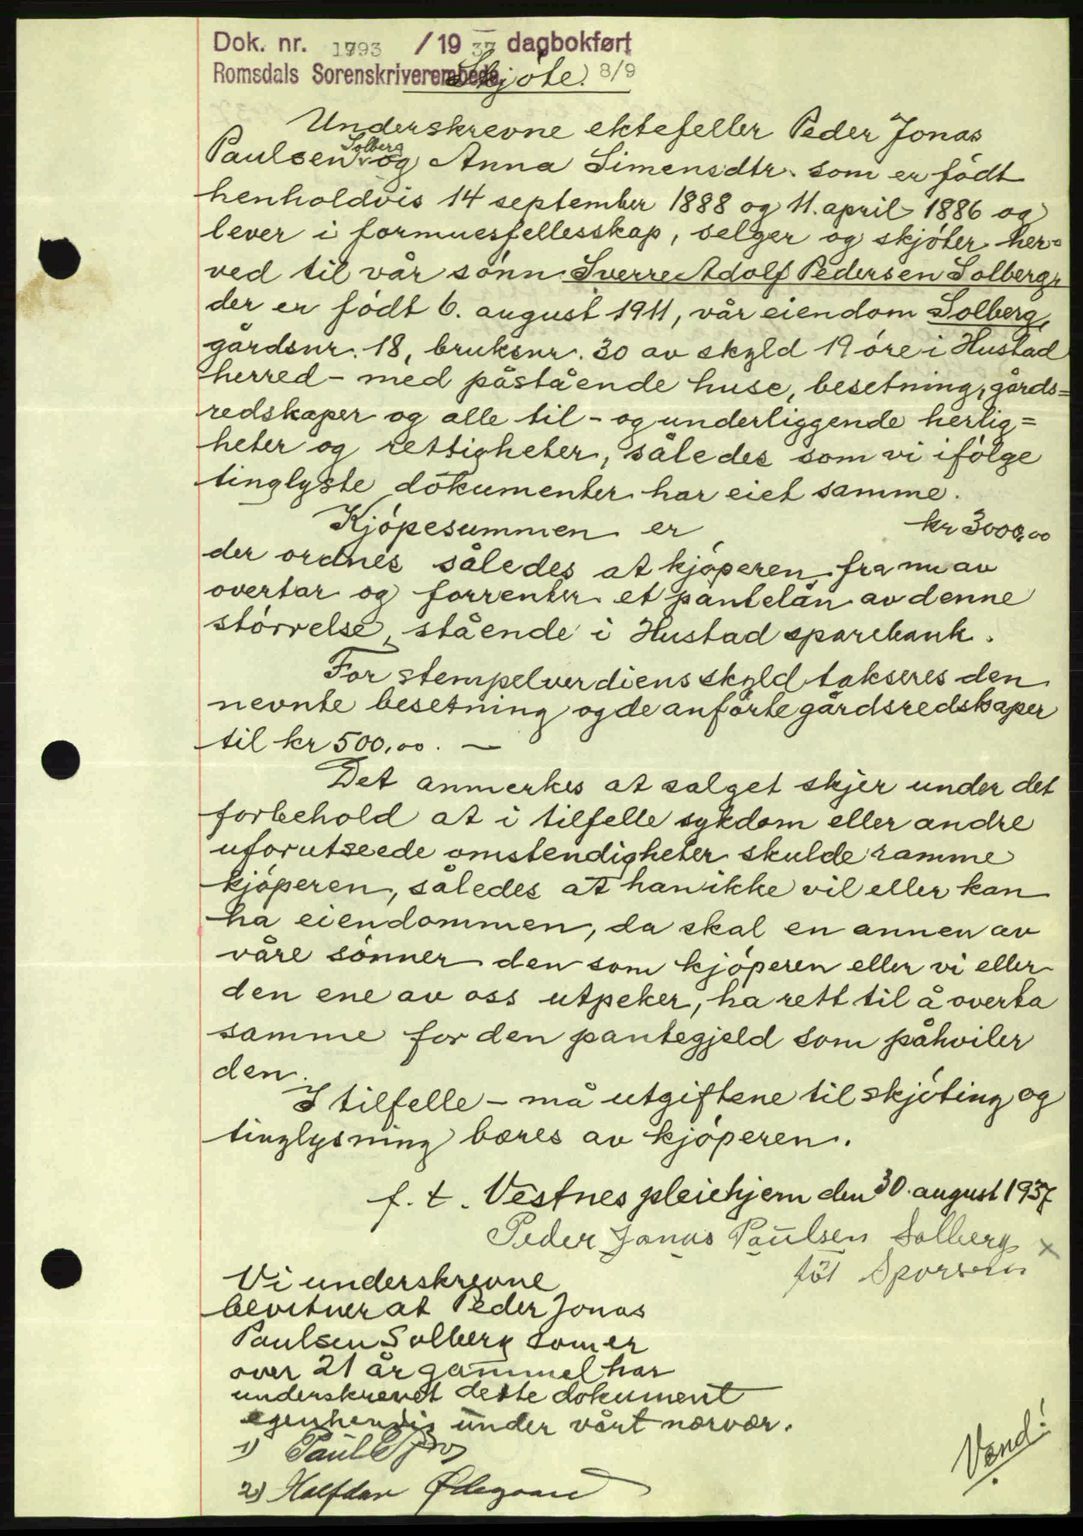 Dok. nr. 1793 / 19 37 dagbokført
Romsdals Sorenskriverembede 8/9
Skjóte.
Underskrevne ektefeller Peder Jonas
Paulsen Solberg og Anna Simensdtr. som er fódt
henholdvis 14 september 1888 og 11. april 1886 og
lever i formuesfellesskap, selger og skjóter her=
ved til vår sónn Sverre Adolf Pedersen Solberg,
der er fódt 6. august 1911, vår eiendom Solberg,
gårdsnr. 18, bruksnr. 30 av skyld 19 óre i Hustad
herred - med påstående huse, besetning, gårds=
redskaper og alle til - og underliggende herlig=
heter og rettigheter, således som vi ifólge
tinglyste dokumenter har eiet samme.
Kjópesummen er kr 3000,00
der ordnes således at kjóperen fra nu av
overtar og forrenter et pantelån av denne
stórrelse, stående i Hustad sparebank.
For stempelverdiens skyld takseres den
nevnte besetning og de anfórte gårdsredskaper
til kr 500,00. —
Det anmerkes at salget skjer under det
forbehold at i tilfelle sykdom eller andre
uforutseede omstendigheter skulde ramme
kjóperen, således at han ikke vil eller kan
ha eiendommen, da skal en annen av
våre sónner den som kjóperen eller vi eller
den ene av oss utpeker, ha rett til å overta
samme for den pantegjeld som påhviler
den.
I tilfelle - må utgiftene til skjóting og
tinglysning bæres av kjóperen.
f. t. Vestnes pleiehjem den 30. august 1937
Peder Jonas Paulsen Solberg x
Vi underskrevne
bevitner at Peder Jonas
Paulsen Solberg som er
over 21 år gammel har
underskrevet dette dokument
egenhendig under vårt nærvær.
1) Paul
2) Halfdan Ødegaard
Vend!